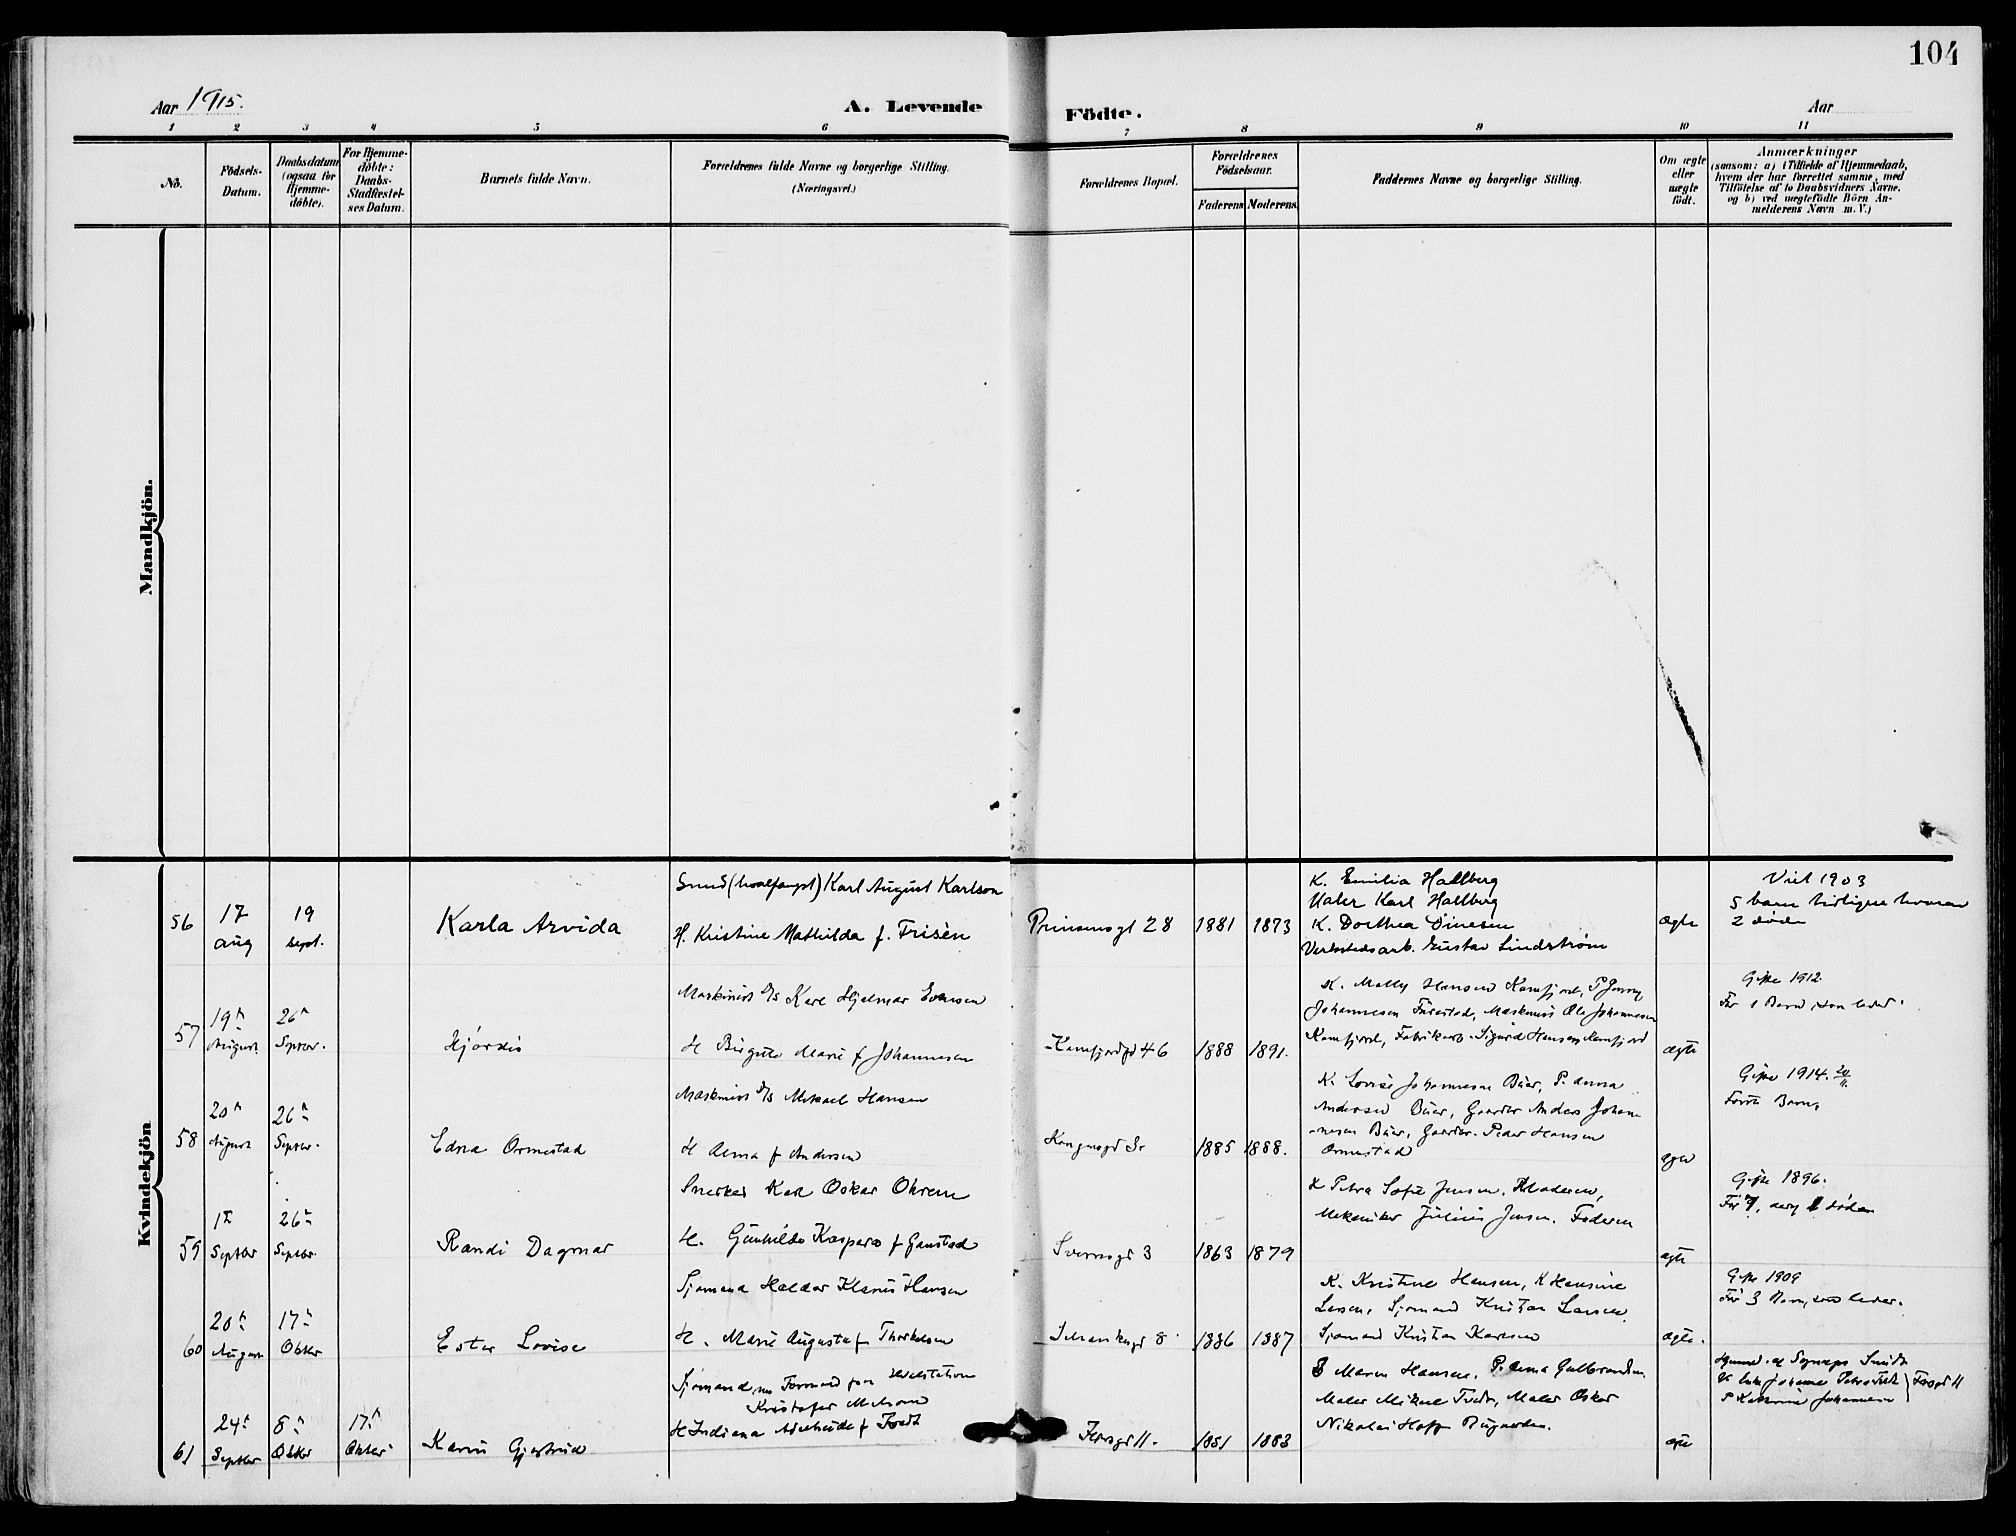 104
Aar 1915.
A. Levende
Födte.
Aar
1 2 3 4 5 6 7 8 9 10 11
No.
Födsels-
Datum.
Daabsdatum
(ogsaa for
Hjemme-
döbte).
For Hjemme-
döbte:
Daabs-
Stadfæstel-
ses Datum.
Barnets fulde Navn.
Forældrenes fulde Navne og borgerlige Stilling.
(Næringsvei.)
Forældrenes Bopæl.
Forældrenes
Födselsaar.
Faderens
Moderens
Faddernes Navne og borgerlige Stilling.
Om ægte
eller
uægte
födt.
Anmærkninger
(saasom: a) i Tilfælde af Hjemmedaab,
hvem der har forrettet samme, med
Tilföielse af to Daabsvidners Navne,
og b) ved uægtefödte Börn An-
melderens Navn m. V.)
Mandkjön.
Kvindekjön
56
17
aug
19
sept.
Karla Arvida
Smed (hvalfangst) Karl August Karlson
H. Kristine Mathilda f. Frisèn
Prinsensgt 28
1881
1873
K. Emilia Hallberg
Maler Karl Hallberg
K. Dorthea Dinesen
Verkstedsarb. Gustav Lindström
ægte
Viet 1903
5 barn tidligere hvoraf
2 døde
57
19de
August
26de
Septbr.
Hjördis
Maskinist Karl Hjelmar Evensen
H Birgitte Marie f Johannesen
Kamfjordgd 46
1888
1891.
K. Molly Hansen Kamfjord, P Jenny
Johannesen Furustad, Maskinist Ole Johannesen
Kamfjord, Fabrikarb. Sigurd Hansen Kamfjord
ægte
Gifte 1912
Før 1 Barn, som lever.
58
20de
August
26de
Septbr.
Edna Ormestad
Maskinist Mikael Hansen
H Anna f Andersen
Kongensgd
1885
1888.
K. Lovise Johannesen Buer, P. Anna
Andersen Buer, Gaardbr Anders Johan-
nesen Buer, Gaardbr. Peder Hansen
Ormestad
ægte
Gifte 1914.
Første Barn.
59
1ste
Septbr
26de
Septbr.
Randi Dagmar
Snedker Karl Oskar Ohren
H. Gunhilda Kaspara f Gaustad
Sverresgd 3
1863
1879
K Petra Sofie Jensen, Moderen,
Mekaniker Julius Jensen, Faderen
ægte
Gifte 1896.
Før 7, deraf 1 døde
60
20de
August
17de
Oktbr
Ester Lovise
Sjømand Haldor Klarius Hansen
H. Marie Augusta f Thorkelsen
1886
1887
K. Kristine Hansen, K Hansine
Larsen, Sjømand Kristian Larsen,
Sjømand Kristian Karlsen
ægte.
Gifte 1909
Før 3 Barn, som lever.
61
24de
Septbr
8de
Oktbr
17de
Oktbr
Karin Gjertrud
Sjømand, nu Formand paa
Kristofer
H Indiana Adelheide f Tvedt
11.
1881
1883
Maren Hansen, P. Anna Gulbrandsen
Maler Mikael Tvedt, Maler Oskar
Nikolai Hoff
ægte
Hjemmed. af Sogneprs Smidt